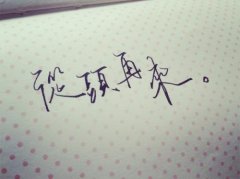 從頭再來。